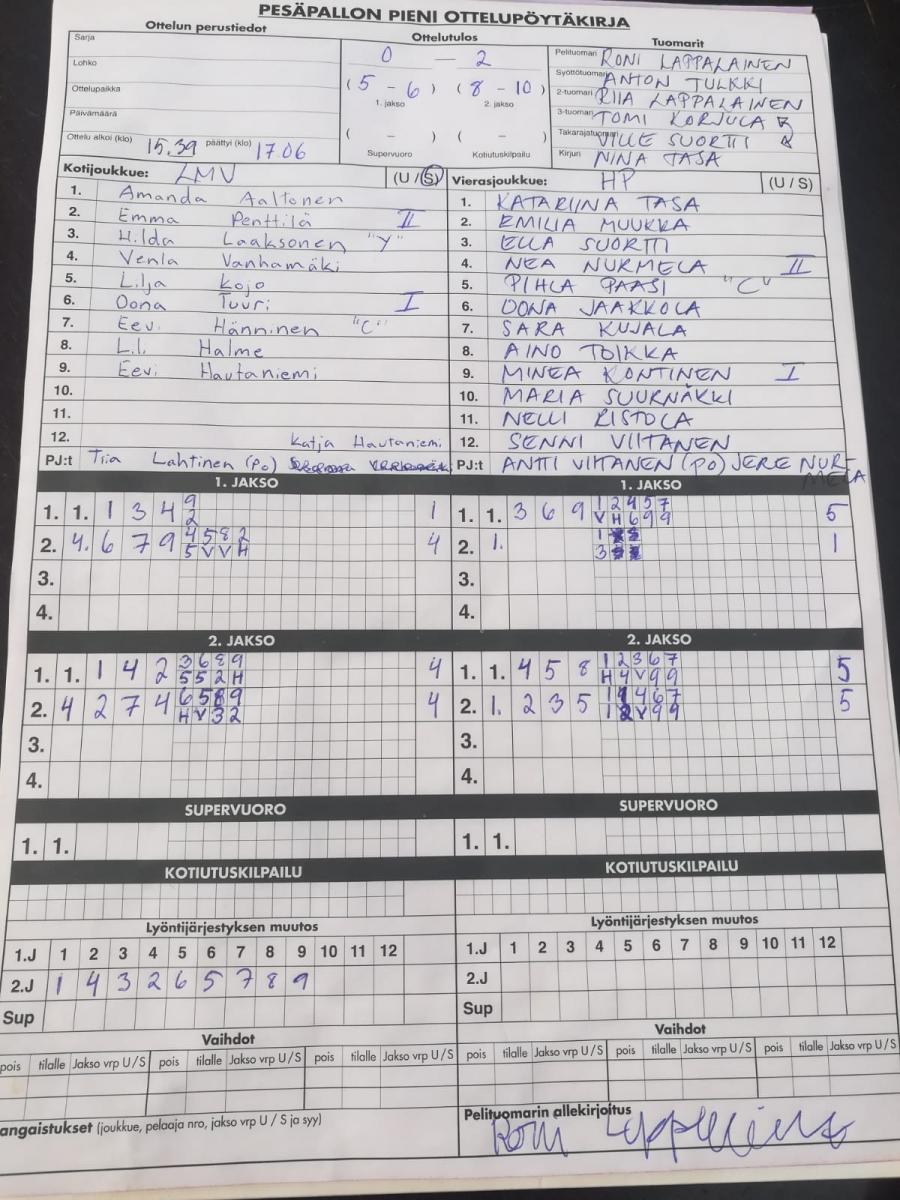 PESÄPALLON PIENI OTTELUPÖYTÄKIRJA
Ottelun perustiedot
Sarja
Lohko
Ottelupaikka
Päivämäärä
Ottelu alkoi (klo) 15.39 päättyi (klo) 17.06
Ottelutulos
0 – 2
(5 - 6) (8 - 10)
1. jakso 2. jakso
( - ) ( - )
Supervuoro Kotiutuskilpailu
Tuomarit
Pelituomari RONI LAPPALAINEN
Syöttötuomari ANTON TULKKI
2-tuomari RIIA LAPPALAINEN
3-tuomari TOMI KORJULA
Takarajatuomari VILLE SUORTTI
Kirjuri NINA TASA
Kotijoukkue: LMV (U / S)
1. Amanda Aaltonen
2. Emma Penttilä II
3. Hilda Laaksonen "Y"
4. Venla Vanhamäki
5. Lilja Kojo
6. Oona Tuuri I
7. Eevi Hänninen "C"
8. Lili Halme
9. Eevi Hautaniemi
10.
11.
12. Katja Hautaniemi
PJ:t Tiia Lahtinen (Po)
Vierasjoukkue: HP (U / S)
1. KATARIINA TASA
2. EMILIA MUUKKA
3. ELLA SUORTTI
4. NEA NURMELA II
5. PIHLA PAASI "C"
6. OONA JAAKKOLA
7. SARA KUJALA
8. AINO TOIKKA
9. MINEA KONTINEN I
10. MARIA SUURNÄKKI
11. NELLI RISTOLA
12. SENNI VIITANEN
PJ:t ANTTI VIITANEN (PO) JERE NUR-
MELA
1. JAKSO
9
1. 1. 1 3 4 2 1
4 5 8 2
2. 4. 6 7 9 5 V V H 4
3.
4.
1. JAKSO
1 2 4 5 7
1. 1. 3 6 9 V H 6 9 9 5
1
2. 1. 3 1
3.
4.
2. JAKSO
3 6 8 9
1. 1. 1 4 2 5 5 2 H 4
6 5 8 9
2. 4 2 7 4 H V 3 2 4
3.
4.
2. JAKSO
1 2 3 6 7
1. 1. 4 5 8 H 4 V 9 9 5
1 1 4 6 7
2. 1. 2 3 5 1 2 V 9 9 5
3.
4.
SUPERVUORO
1. 1.
SUPERVUORO
1. 1.
KOTIUTUSKILPAILU
KOTIUTUSKILPAILU
Lyöntijärjestyksen muutos
1.J 1 2 3 4 5 6 7 8 9 10 11 12
2.J 1 4 3 2 6 5 7 8 9
Sup
Lyöntijärjestyksen muutos
1.J 1 2 3 4 5 6 7 8 9 10 11 12
2.J
Sup
Vaihdot
pois tilalle Jakso vrp U / S pois tilalle Jakso vrp U / S pois tilalle Jakso vrp U / S
Vaihdot
pois tilalle Jakso vrp U / S pois tilalle Jakso vrp U / S pois tilalle Jakso vrp U / S
angaistukset (joukkue, pelaaja nro, jakso vrp U / S ja syy)
Pelituomarin allekirjoitus